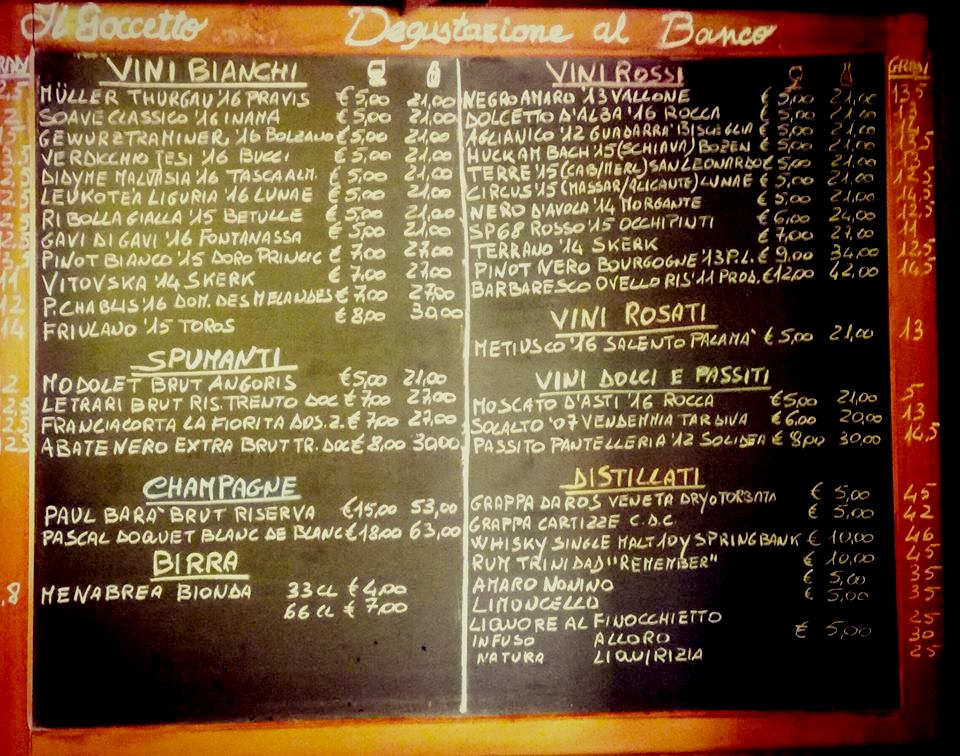 Il Goccetto Degustazione al Banco
VINI BIANCHI
MÜLLER THURGAU '16 PRAVIS € 5,00 21,00
SOAVE CLASSICO '16 INAMA € 5,00 21,00
GEWURZTRAMINER '16 BOLZANO € 5,00 21,00
VERDICCHIO JESI '16 BUCCI € 5,00 21,00
DIDYME MALVASIA '16 TASCA ALM. € 5,00 21,00
LEUKOTEA LIGURIA '16 LUNAE € 5,00 21,00
RIBOLLA GIALLA '15 BETULLE € 5,00 21,00
GAVI DI GAVI '16 FONTANASSA € 5,00 21,00
PINOT BIANCO '15 DORO PRINCIC € 7,00 27,00
VITOVSKA '14 SKERK € 7,00 27,00
P.CHABLIS '16 DOM. DES MELANDES € 7,00 27,00
FRIULANO '15 TOROS € 8,00 30,00
SPUMANTI
MODOLET BRUT ANGORIS € 5,00 21,00
LETRARI BRUT RIS. TRENTO DOC € 7,00 27,00
FRANCIACORTA LA FIORITA DOS. Z. € 7,00 27,00
ABATE NERO EXTRA BRUT TR. DOC € 8,00 30,00
CHAMPAGNE
PAUL BARA' BRUT RISERVA € 15,00 53,00
PASCAL DOQUET BLANC DE BLANC € 18,00 63,00
BIRRA
,8 MENABREA BIONDA 33 CL € 4,00
66 CL € 7,00
VINI ROSSI GRADI
NEGROAMARO '13 VALLONE € 5,00 21,00 13,5
DOLCETTO D'ALBA '16 ROCCA € 5,00 21,00
AGLIANICO '12 GUADARRA' BISCEGLIA € 5,00 21,00
HUCKAM BACH '15 (SCHIAVA) BOZEN € 5,00 21,00
TERRE '15 (CAB/MERL) SAN LEONARDO € 5,00 21,00
CIRCUS '15 (MASSAR/ALICANTE) LUNAE € 5,00 21,00
NERO D'AVOLA '14 MORGANTE € 5,00 21,00
SP68 ROSSO '15 OCCHIPINTI € 6,00 24,00
TERRANO '14 SKERK € 7,00 27,00 11
PINOT NERO BOURGOGNE '13 P.L. € 9,00 34,00 12,5
BARBARESCO OVELLO RIS '11 PROD. € 12,00 42,00 14,5
VINI ROSATI
METIUSCO '16 SALENTO PALAMA' € 5,00 21,00 13
VINI DOLCI E PASSITI
MOSCATO D'ASTI '16 ROCCA € 5,00 21,00 5
SOLALTO '07 VENDEMMIA TARDIVA € 6,00 20,00 13
PASSITO PANTELLERIA '12 SOLIDEA € 8,00 30,00 14,5
DISTILLATI
GRAPPA DA ROS VENETA DRY O TORBATA € 5,00 45
GRAPPA CARTIZZE C.D.C € 5,00 42
WHISKY SINGLE MALT 10Y SPRINGBANK € 10,00 46
RUM TRINIDAD "REMEMBER" € 10,00 45
AMARO NONINO € 5,00 35
LIMONCELLO € 5,00 35
LIQUORE AL FINOCCHIETTO 25
INFUSO ALLORO € 5,00 30
NATURA LIQUIRIZIA 25